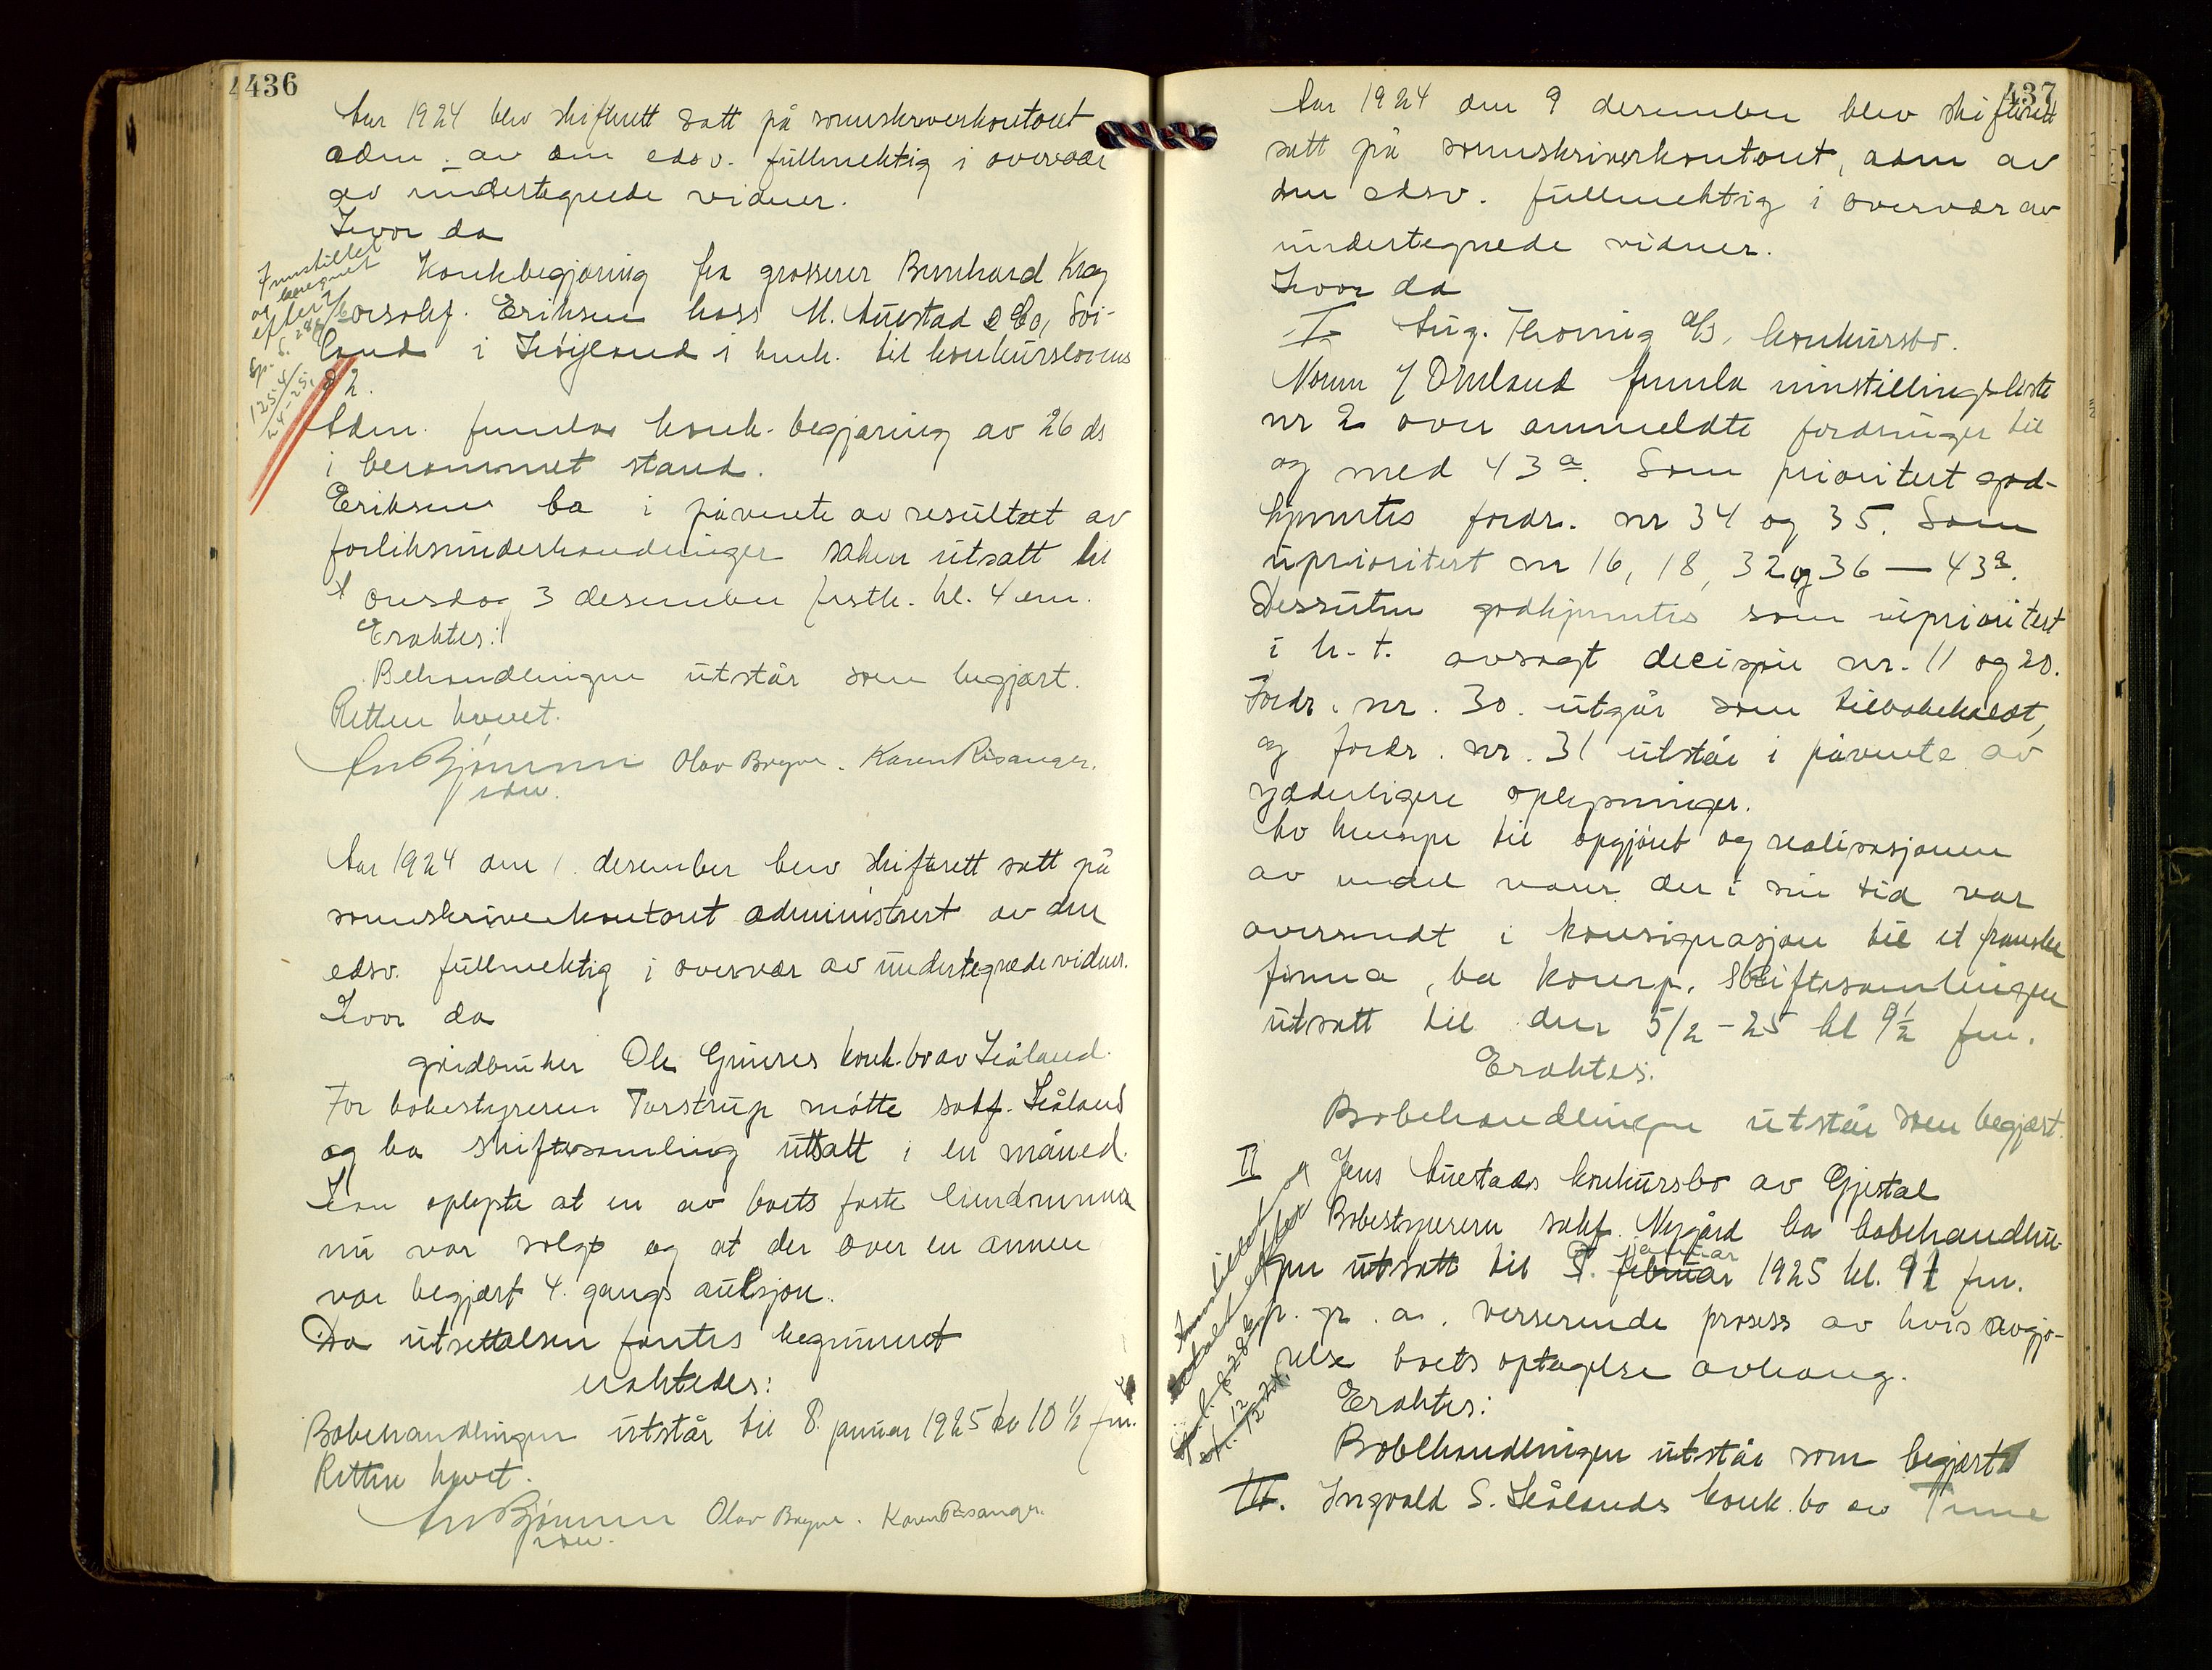 436
Aar 1924 blev skifterett satt på sorenskriverkontoret
adm. av den edsv. fullmektig i overvær
av undertegnede vidner.
Hvor da
Konkbegjæring fra grosserer Bernhard Krag
o.r.sakf. Eriksen hoss M. Auestad & Co,
land i Høyland i henh. til konkurslovens
§ 2.
Adm. fremla konk. begjæring av 26 ds
i berammet stand.
Eriksen ba i påvente av resultatet av
forliksunderhandlinger saken utsatt til
onsdag 3 desember førstk. kl. 4 em.
Eraktes:
Behandlingen utstår som begjært.
Retten hevet.
Olav Bryne. Karen Risanger.
Aar 1924 den 1. desember blev skifterett satt på
sorenskriverkontoret administrert av den
edsv. fullmektig i overvær av undertegnede vidner.
Hvor da
gårdbruker Ole Grurres konk.bo av Håland.
For bobestyreren Tarstrup møtte sakf. Håland
og ba skiftesamling utsatt i en måned.
Han oplyste at en av boets faste eiendommer
nu var solgt og at der over en annen
var begjært 4. gangs auksjon.
Da utsettelsen fantes begrunnet
eraktedes:
Bobehandlingen utstår til 8. januar 1925 kl 10 1/2 fm.
Retten hevet.
Olav Bryne. Karen Risanger.
Innstillet
og beregnet
efter
Sp. S. 286
125 4/
24-25
437
Aar 1924 den 9 desember blev skifterett
satt på sorenskriverkontoret, adm av
den edsv. fullmektig i overvær av
undertegnede vidner.
Hvor da
I Aug. Thornig A/S, konkursbo.
Norem / Omland fremla innstillingsliste
nr 2 over anmeldte fordringer til
og med 43 a. Som prioritert god-
kjentes fordr. nr 34 og 35. Som
uprioritert nr 16, 18, 32 og 36 — 43 a.
Dessuten godkjentes som uprioritert
i h. t. avsagt decisjon nr. 11 og 20.
Fordr. nr. 30. utgår som tilbakekaldt,
og fordr. nr. 31 utstår i påvente av
yderligere oplysninger.
Av hensyn til opgjøret og realisasjonen
av endel varer der i sin tid var
oversendt i konsignasjon til et franske
firma, ba komp. skiftesamlingen
utsatt til den 5/2 - 25 kl 9 1/2 fm.
Eraktes:
Bobehandlingen utstår som begjært.
II Jens Auestads konkursbo av Gjestal
Bobestyreren sakf. Nygård ba bobehandlin-
gen utsatt til 8. februar januar 1925 kl. 11 fm.
p. gr. a. verserende prosess av hvis avgjø-
relse boets optagelse avhang.
Eraktes:
Bobehandlingen utstår som begjært
III. Ingvald S. Hålands konk.bo av Time